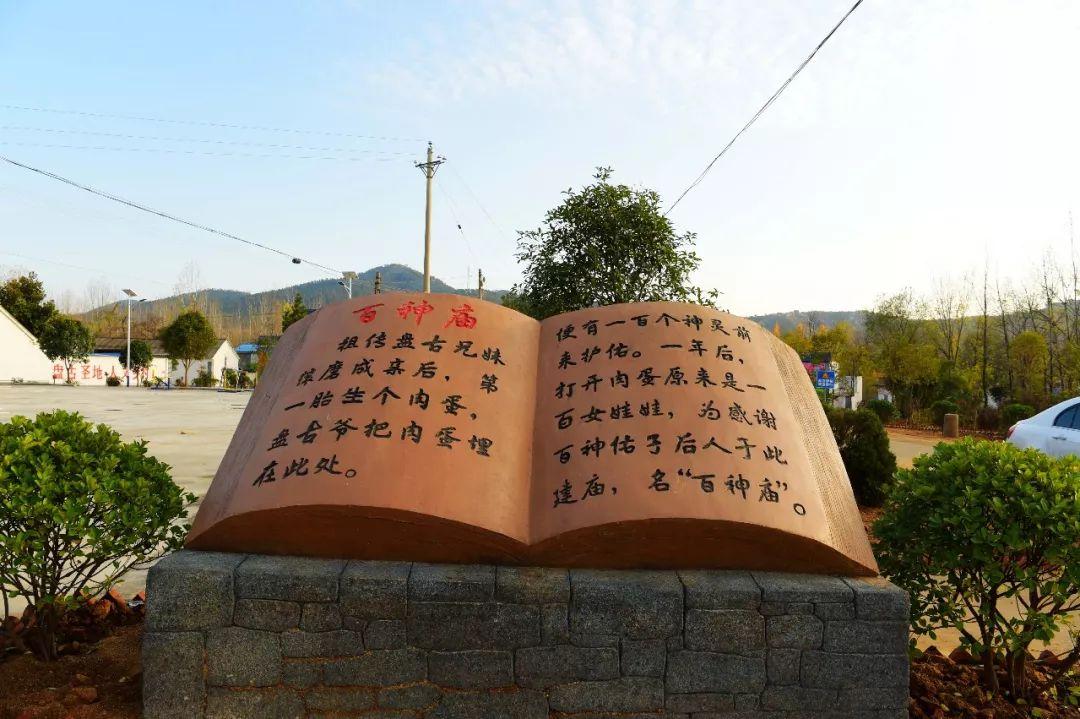 百神庙
祖传盘古兄妹
滚磨成亲后，第
一胎生个肉蛋，
盘古爷把肉蛋埋
在此处。
便有一百个神灵前
来护佑。一年后，
打开肉蛋原来是一
百女娃娃，为感谢
百神佑子后人于此
建庙，名“百神庙”。
盘古圣地·人